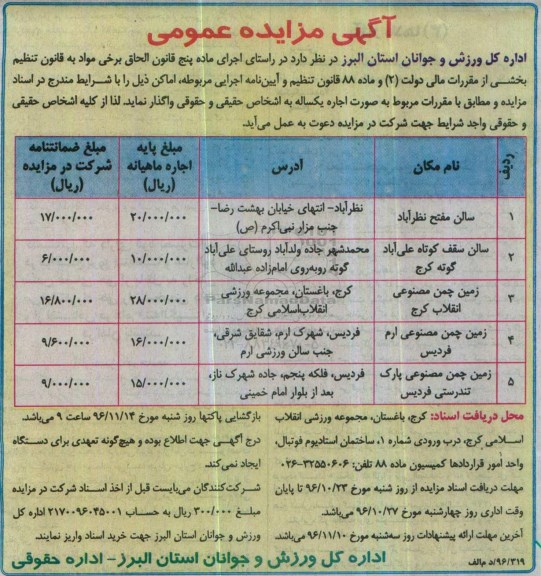 آگهی مزایده عمومی
اداره کل ورزش و جوانان استان البرز در نظر دارد در راستای اجرای ماده پنج قانون الحاق برخی مواد به قانون تنظیم
بخشی از مقررات مالی دولت (۲) و ماده ۸۸ قانون تنظیم و آیین‌نامه اجرایی مربوطه، اماکن ذیل را با شرایط مندرج در اسناد
مزایده و مطابق با مقررات مربوط به صورت اجاره یکساله به اشخاص حقیقی و حقوقی واگذار نماید. لذا از کلیه اشخاص حقیقی
و حقوقی واجد شرایط جهت شرکت در مزایده دعوت به عمل می‌آید.
ردیف نام مکان آدرس مبلغ پایه اجاره ماهیانه (ریال) مبلغ ضمانتنامه شرکت در مزایده (ریال)
۱ سالن مفتح نظرآباد نظرآباد- انتهای خیابان بهشت رضا- جنب مزار نبی‌اکرم (ص) ۲۰/۰۰۰/۰۰۰ ۱۷/۰۰۰/۰۰۰
۲ سالن سقف کوتاه علی‌آباد گوته کرج محمدشهر جاده ولدآباد روستای علی‌آباد گوته روبه‌روی امام‌زاده عبدالله ۱۰/۰۰۰/۰۰۰ ۶/۰۰۰/۰۰۰
۳ زمین چمن مصنوعی انقلاب کرج کرج، باغستان، مجموعه ورزشی انقلاب‌اسلامی کرج ۲۸/۰۰۰/۰۰۰ ۱۶/۸۰۰/۰۰۰
۴ زمین چمن مصنوعی ارم فردیس فردیس، شهرک ارم، شقایق شرقی، جنب سالن ورزشی ارم ۱۶/۰۰۰/۰۰۰ ۹/۶۰۰/۰۰۰
۵ زمین چمن مصنوعی پارک تندرستی فردیس فردیس، فلکه پنجم، جاده شهرک ناز، بعد از بلوار امام خمینی ۱۵/۰۰۰/۰۰۰ ۹/۰۰۰/۰۰۰
محل دریافت اسناد: کرج، باغستان، مجموعه ورزشی انقلاب
اسلامی کرج، درب ورودی شماره ۱، ساختمان استادیوم فوتبال،
واحد امور قراردادها کمیسیون ماده ۸۸ تلفن: ۳۲۵۵۰۶۰۶-۰۲۶
مهلت دریافت اسناد مزایده از روز شنبه مورخ ۹۶/۱۰/۲۳ تا پایان
وقت اداری روز چهارشنبه مورخ ۹۶/۱۰/۲۷ می‌باشد.
آخرین مهلت ارائه پیشنهادات روز سه‌شنبه مورخ ۹۶/۱۱/۱۰ می‌باشد.
بازگشایی پاکتها روز شنبه مورخ ۹۶/۱۱/۱۴ ساعت ۹ می‌باشد.
درج آگهی جهت اطلاع بوده و هیچ‌گونه تعهدی برای دستگاه
ایجاد نمی‌کند.
شرکت‌کنندگان می‌بایست قبل از اخذ اسناد شرکت در مزایده
مبلغ ۳۰۰/۰۰۰ ریال به حساب ۲۱۷۰۰۹۶۰۴۵۰۰۱ اداره کل
ورزش و جوانان استان البرز جهت خرید اسناد واریز نمایند.
اداره کل ورزش و جوانان استان البرز- اداره حقوقی
۹۶/۳۱۹/د م‌الف